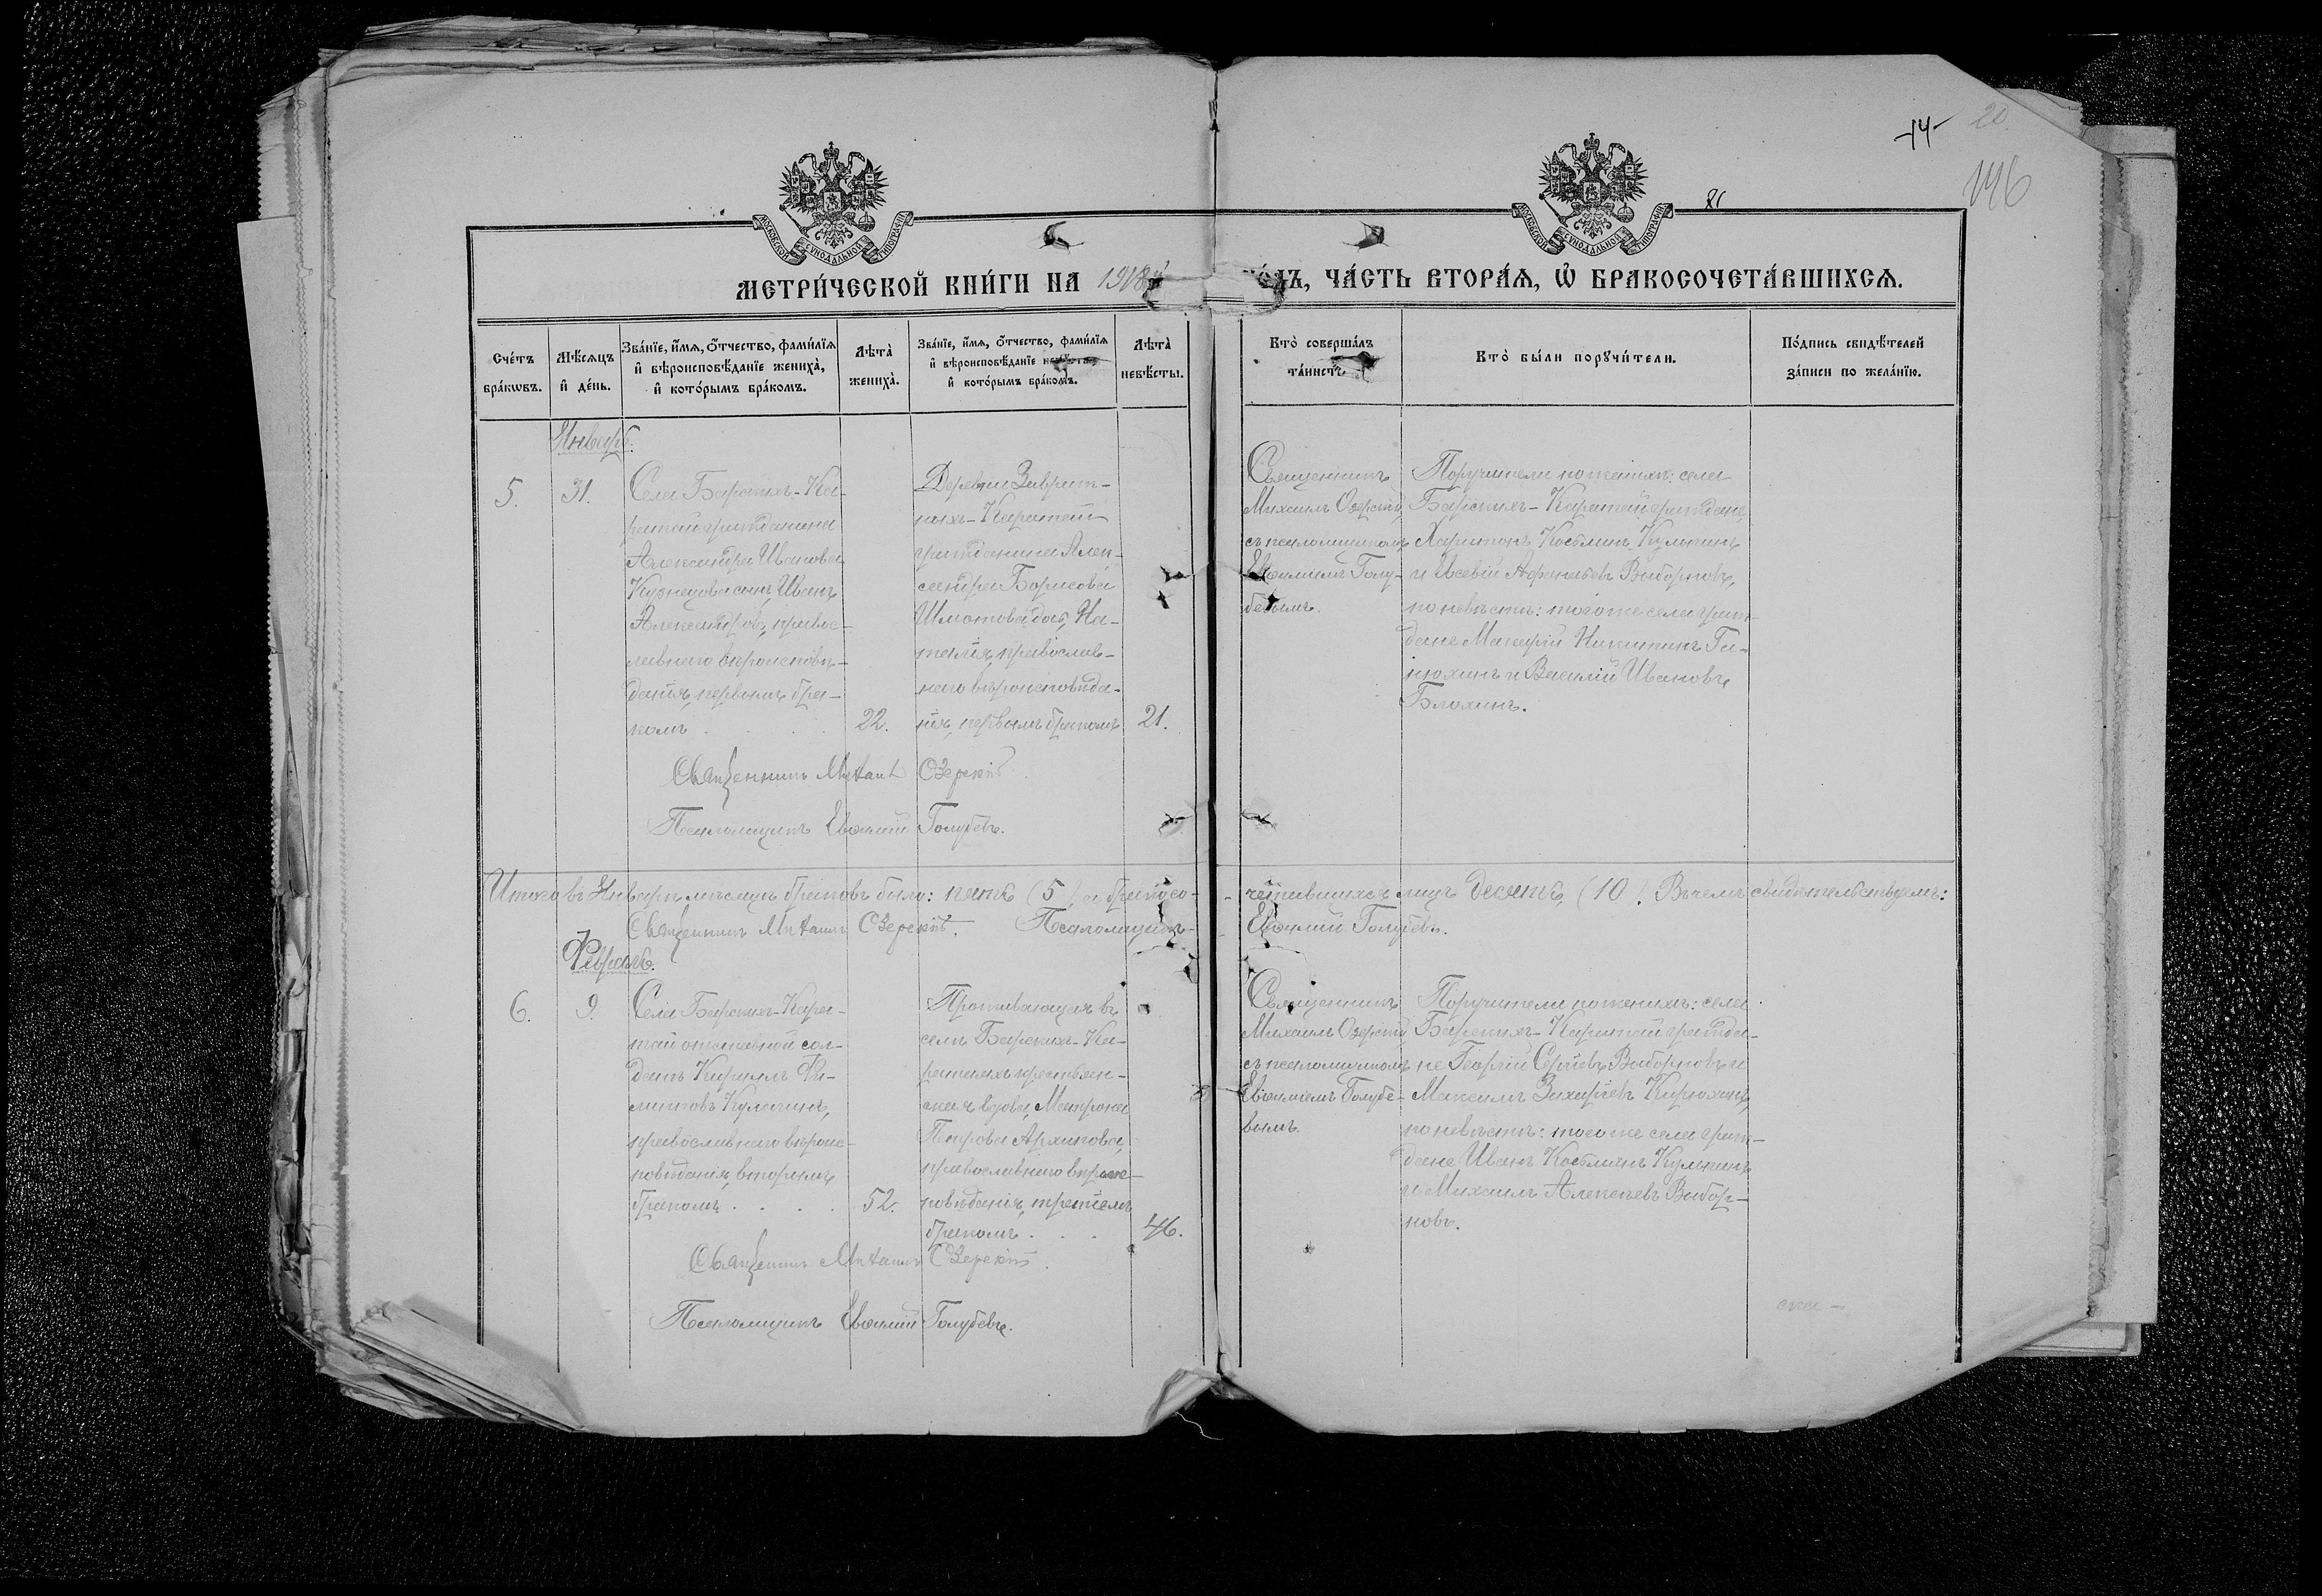 -14- 20.
146
21
МОСКОВСКОЙ СѴНОДАЛЬНОЙ ТИПОГРАФІИ
МОСКОВСКОЙ СѴНОДАЛЬНОЙ ТИПОГРАФІИ
МЕТРИ́ЧЕСКОЙ КНИ́ГИ НА 1918й ГО́ДЪ, ЧА́СТЬ ВТОРА́Я, Ѽ БРАКОСОЧЕТА́ВШИХСЯ.
Сче́тъ бра́кѡвъ.
Мѣ́сяцъ и҆ де́нь.
Зва́нїе, и҆́мя, ѻ҆́тчество, фами́лїя
и҆ вѣроисповѣ́данїе жениха̀,
и҆ кото́рымъ бра́комъ.
Лѣта̀ жениха̀.
Зва́нїе, и҆́мя, ѻ҆́тчество, фами́лїя
и҆ вѣроисповѣ́данїе невѣ́сты,
и҆ кото́рымъ бра́комъ.
Лѣта̀ невѣ́сты.
Кто̀ соверша́лъ
та́инство
Кто̀ бы́ли порꙋчи́тели.
По́дпись свидѣ́телей
за́писи по жела́нїю.
Январь.
5.
31.
Села Барскихъ-Ка-
ратай гражданина
Александра Иванова
Кузнецова сынъ Иванъ
Александровъ, правос-
лавнаго вѣроисповѣ-
данія, первымъ бра-
комъ
22.
Деревни Заврит-
ныхъ-Каратай
гражданина Алек-
сандра Борисова
Шмотова дочь, На-
талія, православ-
наго вѣроисповѣда-
нія, первымъ бракомъ
21.
Священникъ
Михаилъ Озерскій
съ псаломщикомъ
Евѳиміемъ Голу-
бевымъ.
Поручители по женихѣ: села
Барскихъ-Каратай граждане
Харитонъ Косьминъ Кулькинъ
и Евсевій Аѳанасьевъ Выборновъ,
по невѣстѣ: того же села граж-
дане Макарій Никитинъ Га-
нюхинъ и Василій Ивановъ
Блохинъ.
Священникъ Михаилъ Озерскій
Псаломщикъ Евѳимій Голубевъ.
Итого въ Январѣ мѣсяцѣ браковъ было: пять (5), а бракосо-четавшихся лицъ десять (10). Въ чемъ свидѣтельствуемъ:
Священникъ Михаилъ Озерскій. Псаломщикъ Евѳимій Голубевъ.
Февраль.
6.
9.
Села Барскихъ-Кара-
тай отставной сол-
датъ Кириллъ Фи-
липповъ Кулагинъ,
православнаго вѣроис-
повѣданія, вторымъ
бракомъ
52.
Проживающая въ
селѣ Барскихъ-Ка-
ратаяхъ крестьян-
ская вдова, Матрона
Петрова Архипова,
православнаго вѣроис-
повѣданія, третіемъ
бракомъ
46.
Священникъ
Михаилъ Озерскій
съ псаломщикомъ
Евѳиміемъ Голубе-
вымъ.
Поручители по женихѣ: села
Барскихъ-Каратай гражда-
не Георгій Сергѣевъ Выборновъ и
Максимъ Захаріевъ Кирюхинъ,
по невѣстѣ: того же села граж-
дане Иванъ Косьминъ Кулькинъ
и Михаилъ Алексѣевъ Выбор-
новъ.
Священникъ Михаилъ Озерскій.
Псаломщикъ Евѳимій Голубевъ.
ска-